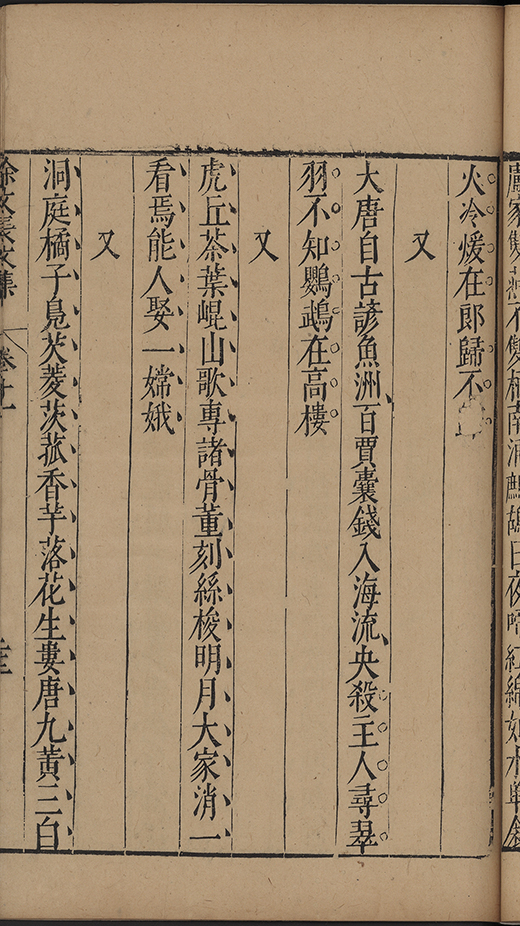 家雙燕不雙栖南浦日夜啼紅綿如水單
火冷煖在郎歸不
又
大唐自古諺魚洲百賈囊錢入海流央殺主人尋翠
羽不知鸚鵡在高樓
又
虎丘茶葉崐山歌專諸骨董刻絲梭明月大家消一
看焉能人娶一嫦娥
又
洞庭橘子鳧芡菱茨菰香芋落花生婁唐九黃三白
徐文長文集 卷十一